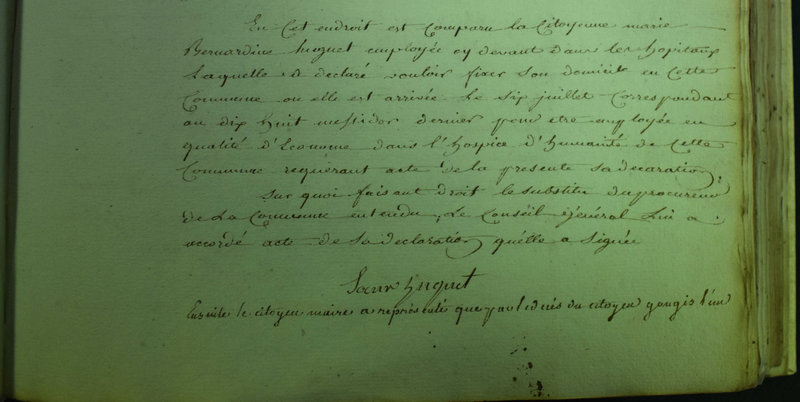 En Cet endroit est Comparu la Citoyenne marie
Bernardine huguet employée cy devant dans les hopitaux
Laquelle a declaré vouloir fixer son domicile en Cette
Commune ou elle est arrivée Le Six juillet Correspondant
au dix huit messidor dernier pour etre employée en
qualité d'Econome dans l'hospice d'humanité de Cette
Commune requérant acte de la presente sa declaration.
Sur quoi faisant droit le substitu du procureur
de La Commune entendu, Le Conseil Général lui a
accordé acte de Sa declaration qu'elle a Signée
Sœur huguet
Ensuite le citoyen maire a représenté que par le décès du citoyen gongis l'un